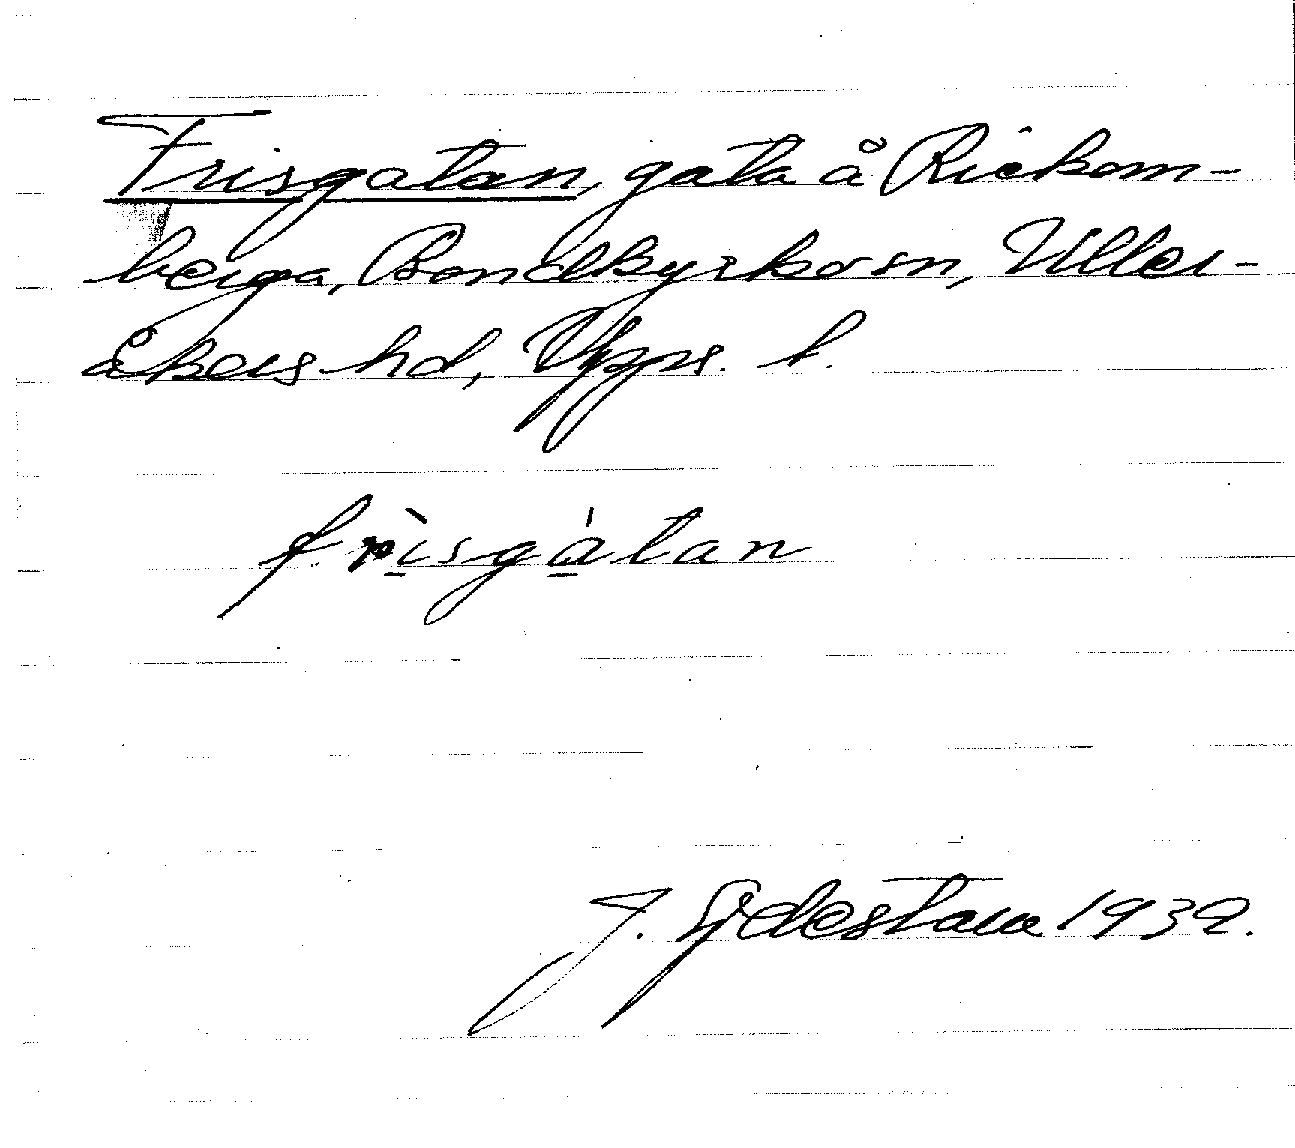 Frisgatan, gata å Rickom-
berga, Bondkyrko sn, Uller-
åkers hd, Upps. l.
frìsgátan
J. Sydestam 1932.